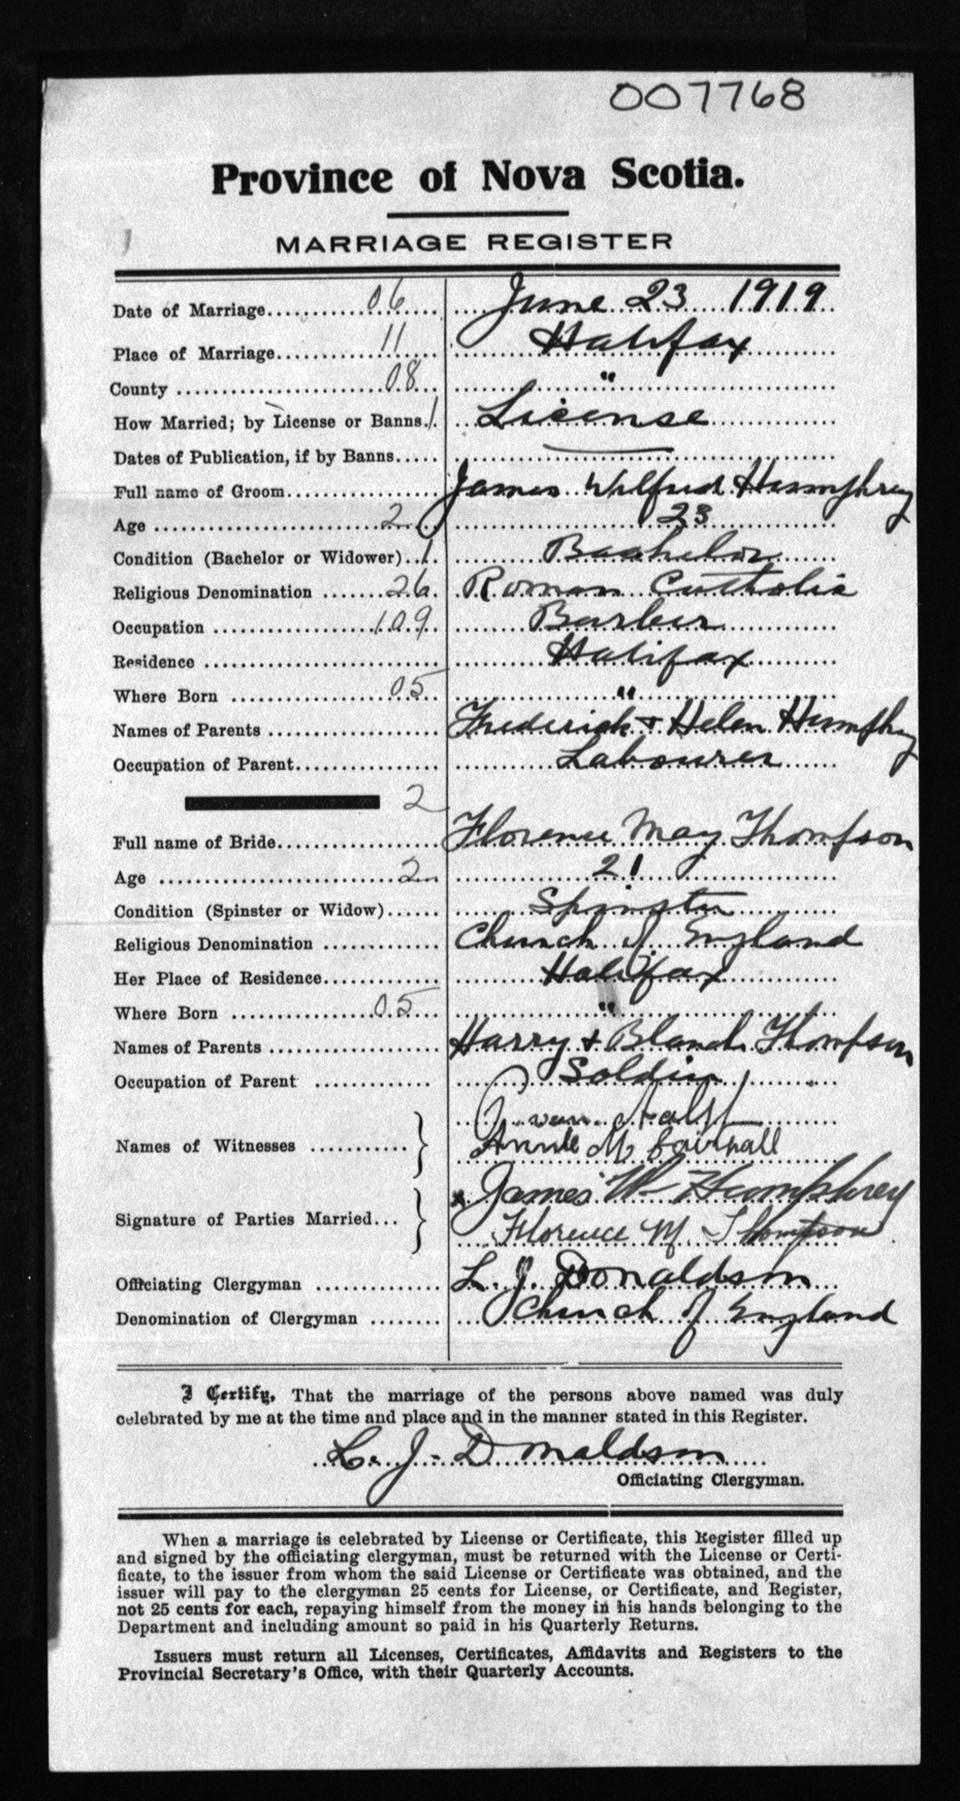 007768
Province of Nova Scotia.
MARRIAGE REGISTER
Date of Marriage 06 June 23 1919
Place of Marriage 11 Halifax
County 08 "
How Married; by License or Banns. 1 License
Dates of Publication, if by Banns
Full name of Groom James Wilfred Humphrey
Age 2 23
Condition (Bachelor or Widower) 1 Bachelor
Religious Denomination 26 Roman Catholic
Occupation 109 Barber
Residence Halifax
Where Born 05 "
Names of Parents Frederick + Helen Humphrey
Occupation of Parent Labourer
2
Full name of Bride Florence May Thompson
Age 2 21
Condition (Spinster or Widow) Spinster
Religious Denomination Church of England
Her Place of Residence Halifax
Where Born 05 "
Names of Parents Harry + Blanch Thompson
Occupation of Parent Soldier
van
Names of Witnesses Annie M
Signature of Parties Married x James W Humphrey
Florence M Thompson
Officiating Clergyman L. J. Donaldson
Denomination of Clergyman Church of England
I Certify, That the marriage of the persons above named was duly
celebrated by me at the time and place and in the manner stated in this Register.
L. J. Donaldson
Officiating Clergyman.
When a marriage is celebrated by License or Certificate, this Register filled up
and signed by the officiating clergyman, must be returned with the License or Certi-
ficate, to the issuer from whom the said License or Certificate was obtained, and the
issuer will pay to the clergyman 25 cents for License, or Certificate, and Register,
not 25 cents for each, repaying himself from the money in his hands belonging to the
Department and including amount so paid in his Quarterly Returns.
Issuers must return all Licenses, Certificates, Affidavits and Registers to the
Provincial Secretary's Office, with their Quarterly Accounts.